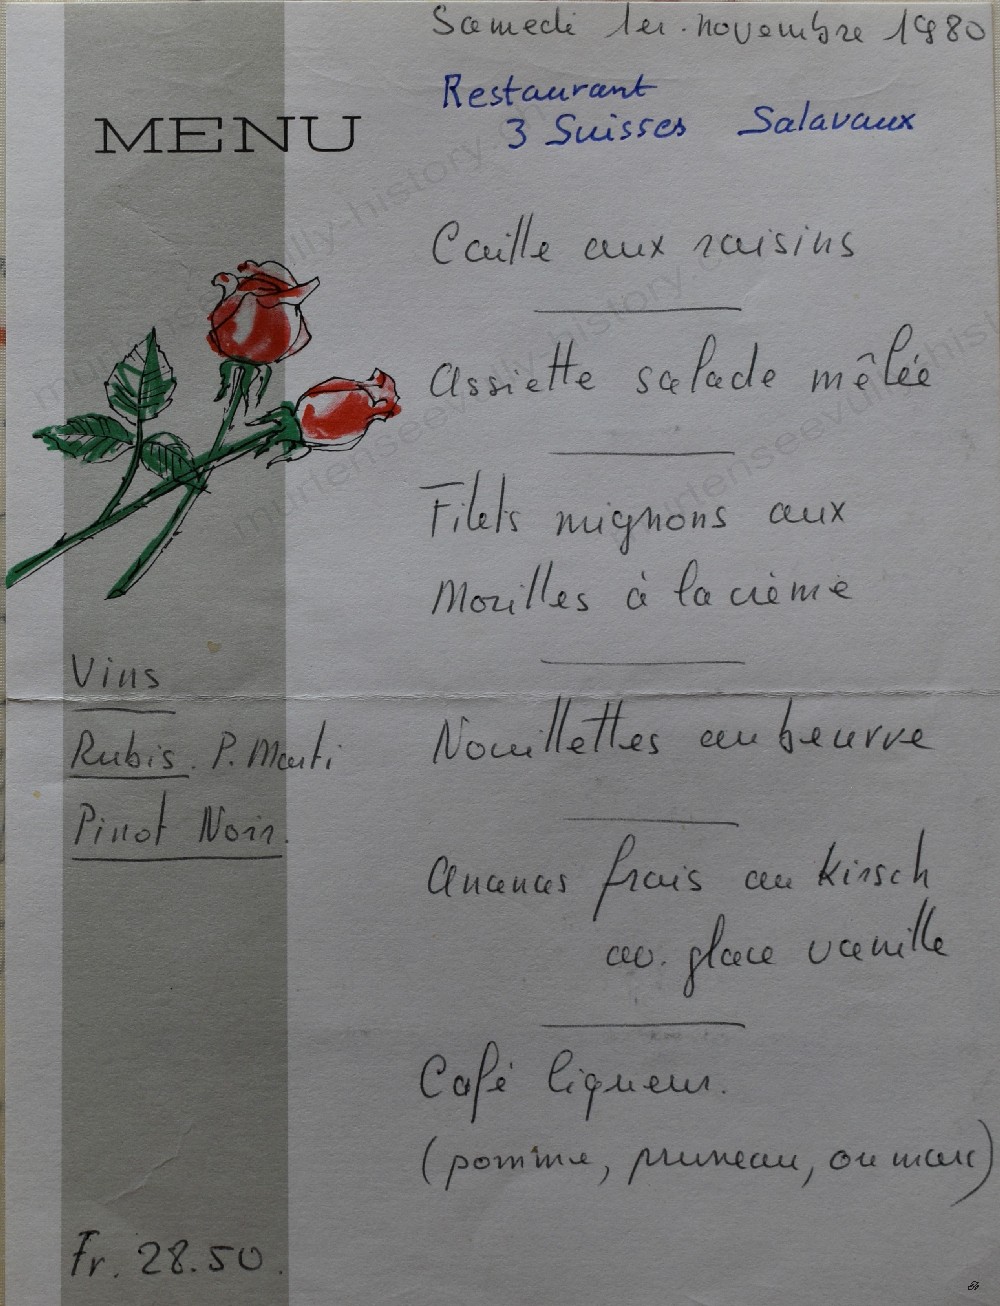 Samedi 1er. novembre 1980
Restaurant
3 Suisses Salavaux
MENU
Caille aux raisins
Assiette salade mêlée
Filets mignons aux
Morilles à la crème
Nouillettes au beurre
Ananas frais au kirsch
av. glace vanille
Café liqueur.
(pomme, pruneau, ou marc)
Vins
Rubis. P. Marti
Pinot Noir.
Fr. 28.50.
murtenseevully-history.ch
murtenseevully-history.ch
murtenseevully-history